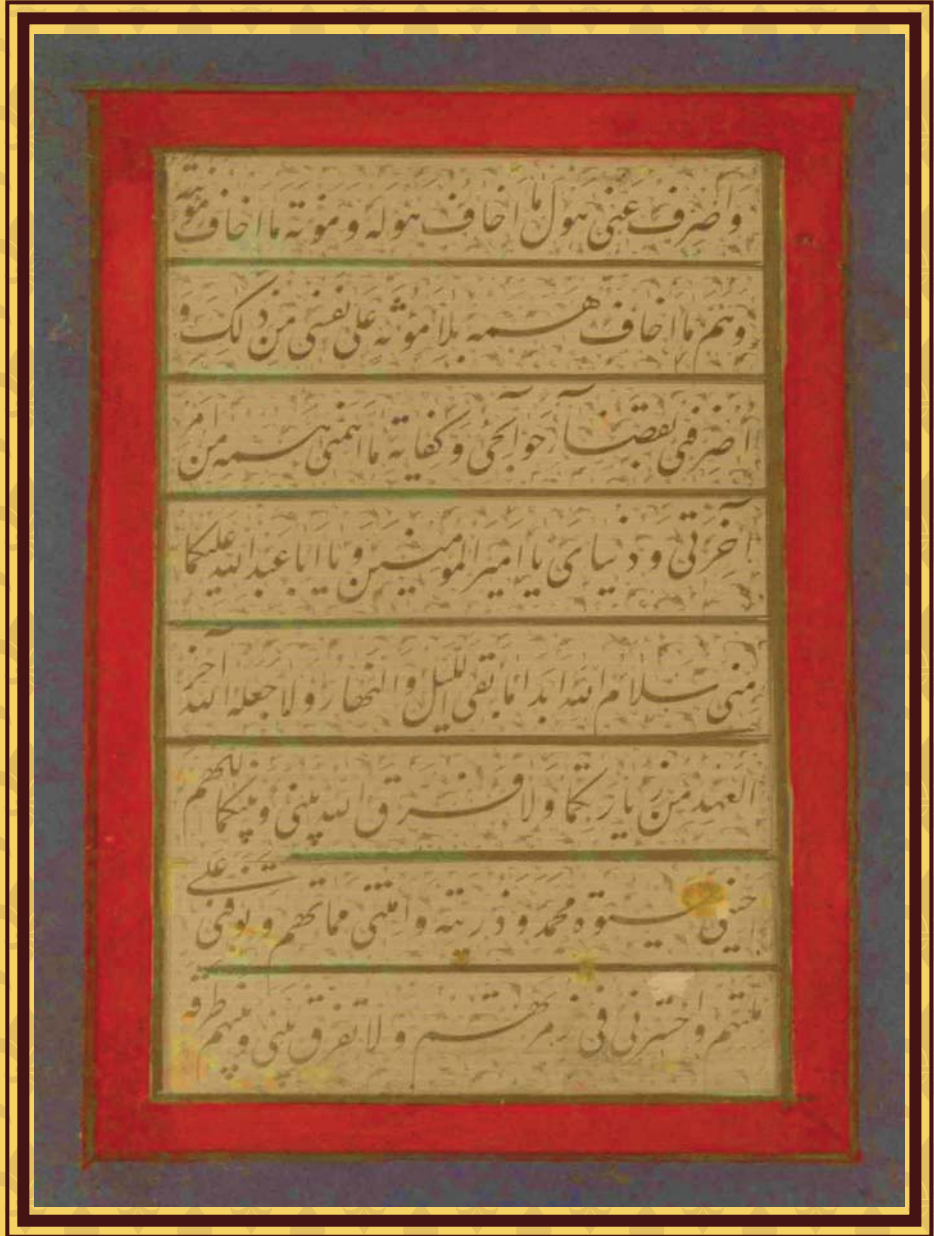 واصرف عنی هول ما اخاف هوله و مؤنه ما اخاف مؤنه
و هم ما اخاف همه بلا مؤنه علی نفسی من ذلک و
اصرفنی بقضآء حوآئجی و کفایه ما اهمنی همه من امر
آخرتی و دنیای یا امیر المومنین و یا ابا عبد الله علیکما
منی سلام الله ابدا ما بقی اللیل والنهار و لا جعله الله آخر
العهد من زیارتکما و لا فرق الله بینی و بینکما اللهم
حینی حیوة محمد و ذریته و امتنی مماتهم و توفنی علی
ملتهم واحشرنی فی زمرتهم و لا تفرق بینی و بینهم طرفه